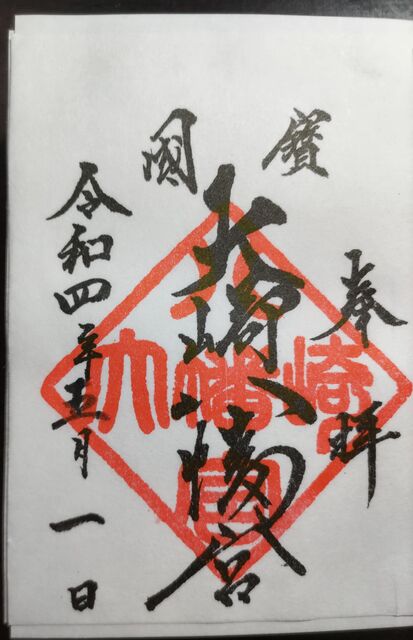 奉拝
國寳
大崎八幡宮
令和四年五月一日